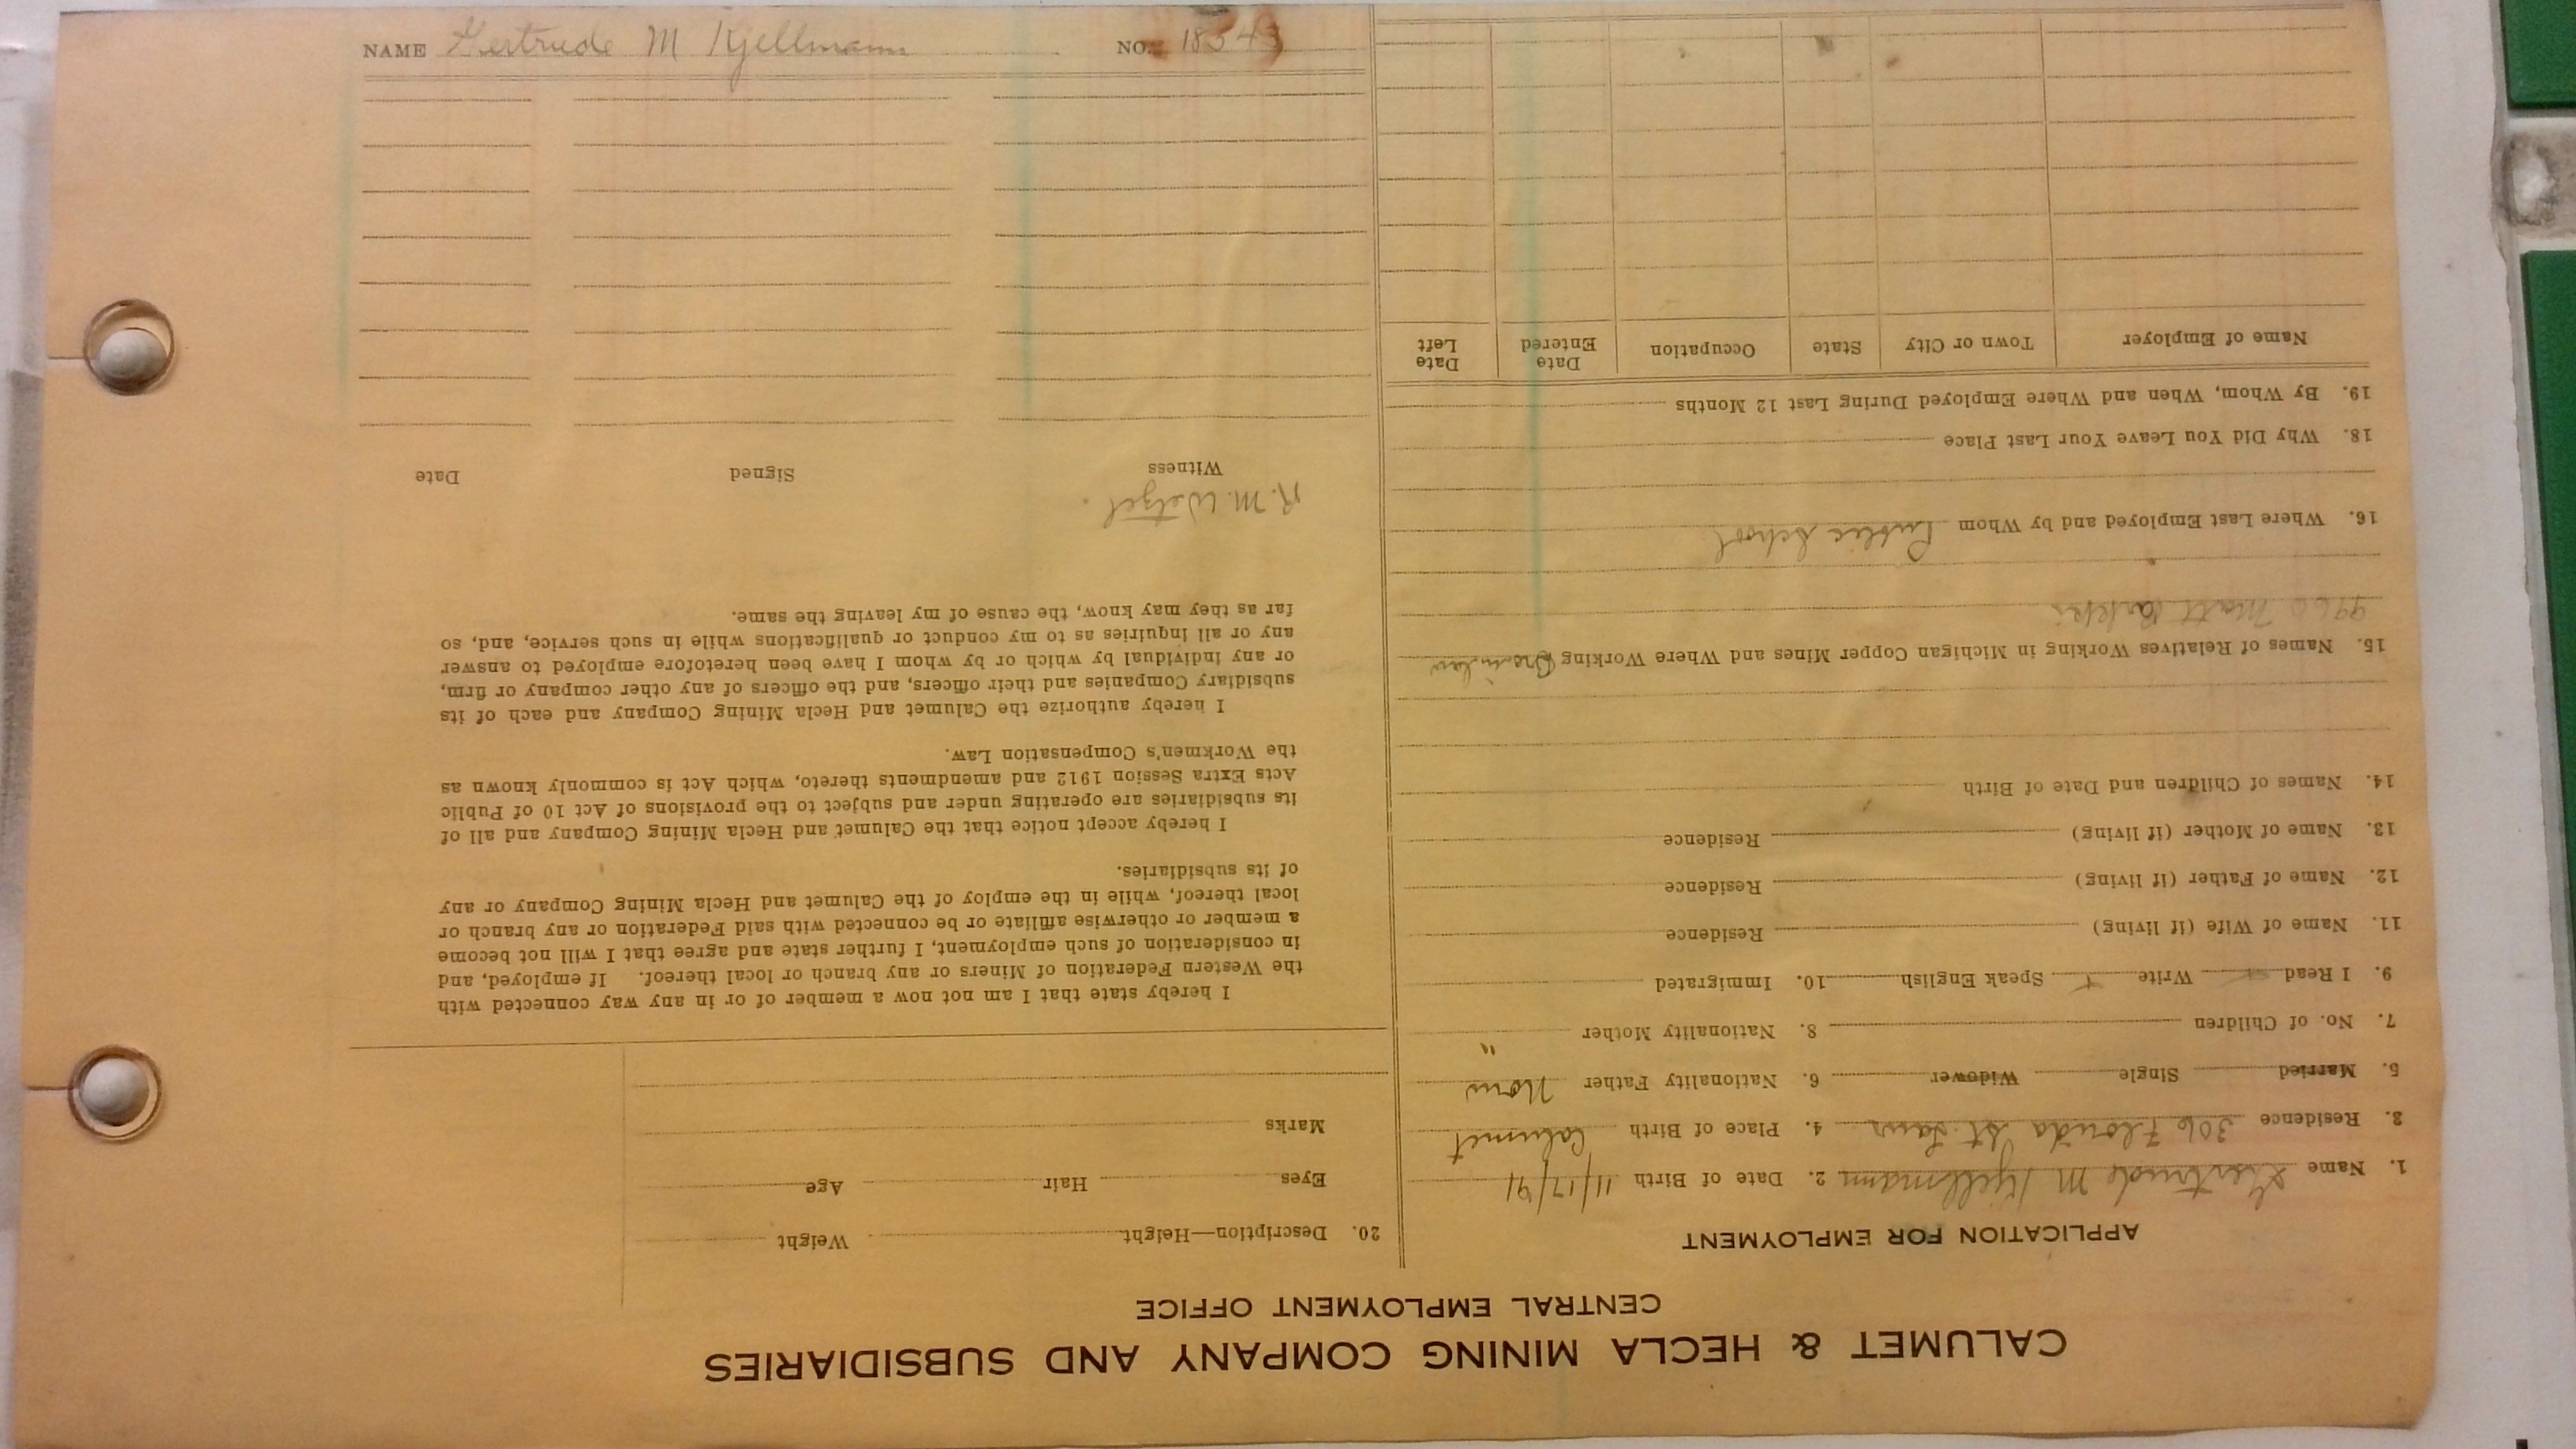 CALUMET & HECLA MINING COMPANY AND SUBSIDIARIES
CENTRAL EMPLOYMENT OFFICE
APPLICATION FOR EMPLOYMENT
1. Name Gertrude M Kjellmann 2. Date of Birth 11/17/91
3. Residence 306 Florida St. Laur 4. Place of Birth Calumet
5. Married Single Widower 6. Nationality Father Norw
7. No. of Children 8. Nationality Mother "
9. I Read Write Speak English 10. Immigrated
11. Name of Wife (if living) Residence
12. Name of Father (if living) Residence
13. Name of Mother (if living) Residence
14. Names of Children and Date of Birth
15. Names of Relatives Working in Michigan Copper Mines and Where Working Bro in law
Matt
16. Where Last Employed and by Whom Public School
18. Why Did You Leave Your Last Place
19. By Whom, When and Where Employed During Last 12 Months
Name of Employer Town or City State Occupation Date Entered Date Left
20. Description—Height Weight
Eyes Hair Age
Marks
I hereby state that I am not now a member of or in any way connected with
the Western Federation of Miners or any branch or local thereof. If employed, and
in consideration of such employment, I further state and agree that I will not become
a member or otherwise affiliate or be connected with said Federation or any branch or
local thereof, while in the employ of the Calumet and Hecla Mining Company or any
of its subsidiaries.
I hereby accept notice that the Calumet and Hecla Mining Company and all of
its subsidiaries are operating under and subject to the provisions of Act 10 of Public
Acts Extra Session 1912 and amendments thereto, which Act is commonly known as
the Workmen's Compensation Law.
I hereby authorize the Calumet and Hecla Mining Company and each of its
subsidiary Companies and their officers, and the officers of any other company or firm,
or any individual by which or by whom I have been heretofore employed to answer
any or all inquiries as to my conduct or qualifications while in such service, and, so
far as they may know, the cause of my leaving the same.
R. M. Wetzel.
Witness Signed Date
NAME Gertrude M Kjellmann NO. 18543